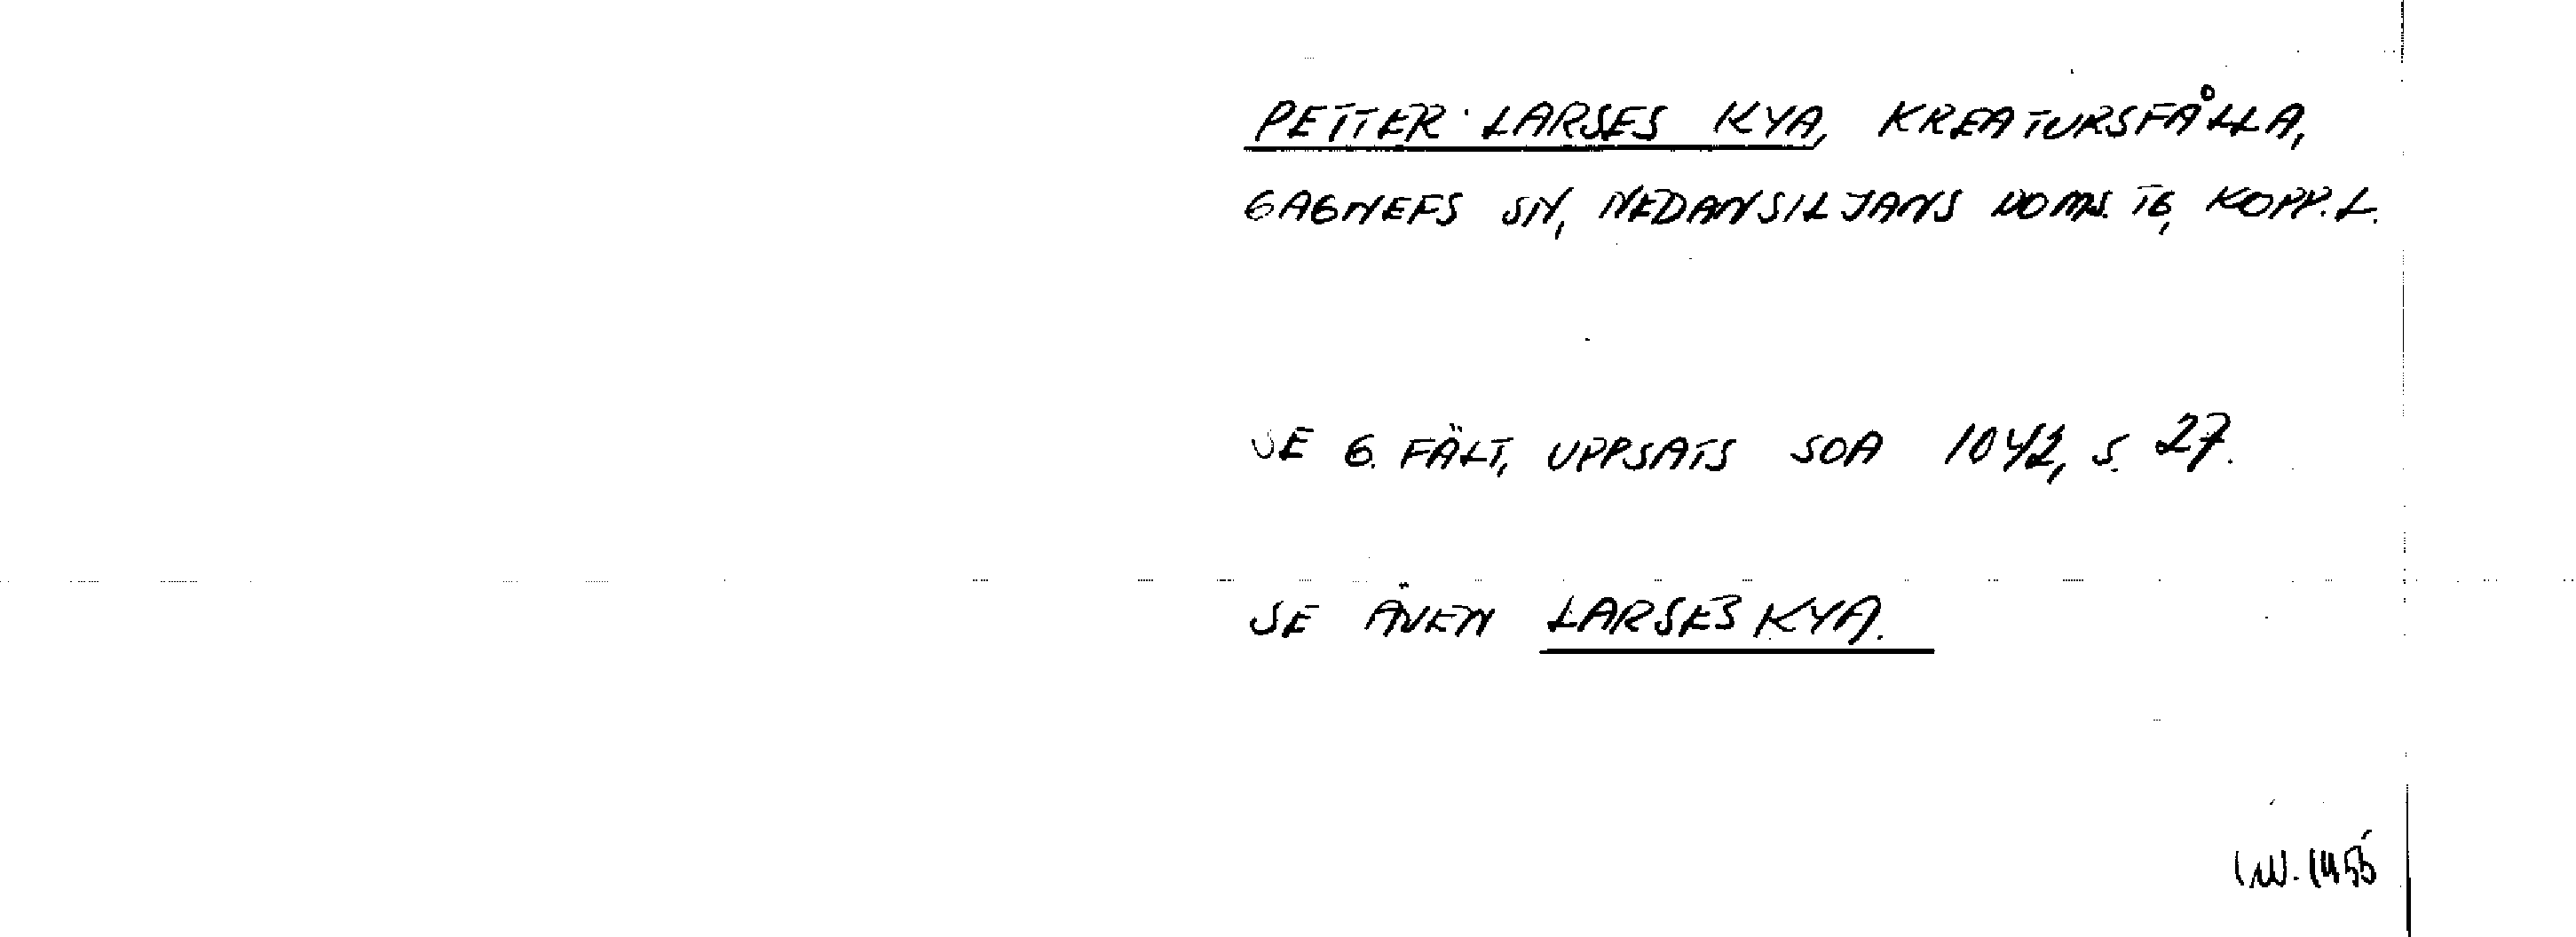 PETTER LARSES KYA, KREATURSFÅLLA,
GAGNEFS SN, NEDANSILJANS DOMS. TG, KOPP. L.
SE G. FÄLT, UPPSATS SOA 1042, S. 27.
SE ÄVEN LARSES KYA.